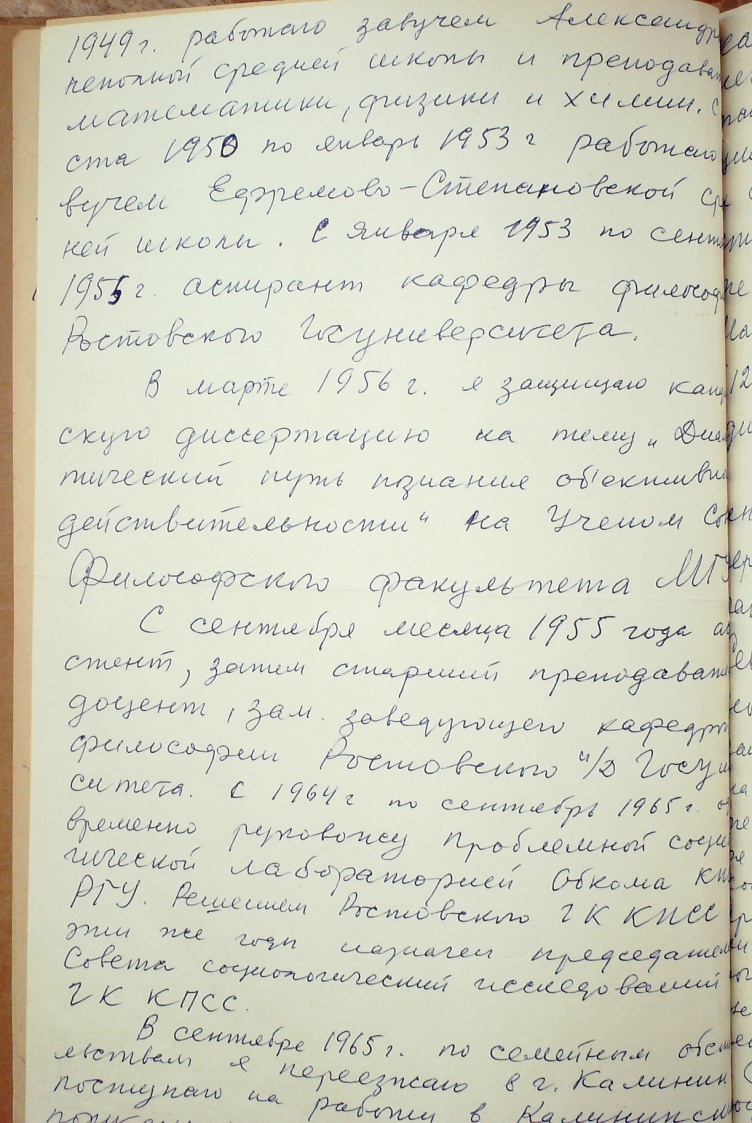 1949 г. работаю завучем Александр
неполной средней школы и преподава
математики, физики и химии. С
ста 1950 по январь 1953 г работаю
вучем Ефремово-Степановской сре
ней школы. С января 1953 по сент
1955 г. аспирант кафедры философ
Ростовского Госуниверситета.
В марте 1956 г. я защищаю канд
скую диссертацию на тему „Диал
тический путь познания объективн
действительности" на Ученом Сов
Философского факультета МГУ
С сентября месяца 1955 года асс
стент, затем старший преподават
доцент, зам. заведующего кафедры
философии Ростовского н/Д Госун
ситета. С 1964 г по сентябрь 1965 г.
временно руковожу проблемной социо
гической лабораторией Обкома КП
РГУ. Решением Ростовского ГК КПСС
эти же годы назначен председателем
Совета социологический исследований
ГК КПСС.
В сентябре 1965 г. по семейным обст
льствам я переезжаю в г. Калинин
поступаю на работу в Калининск